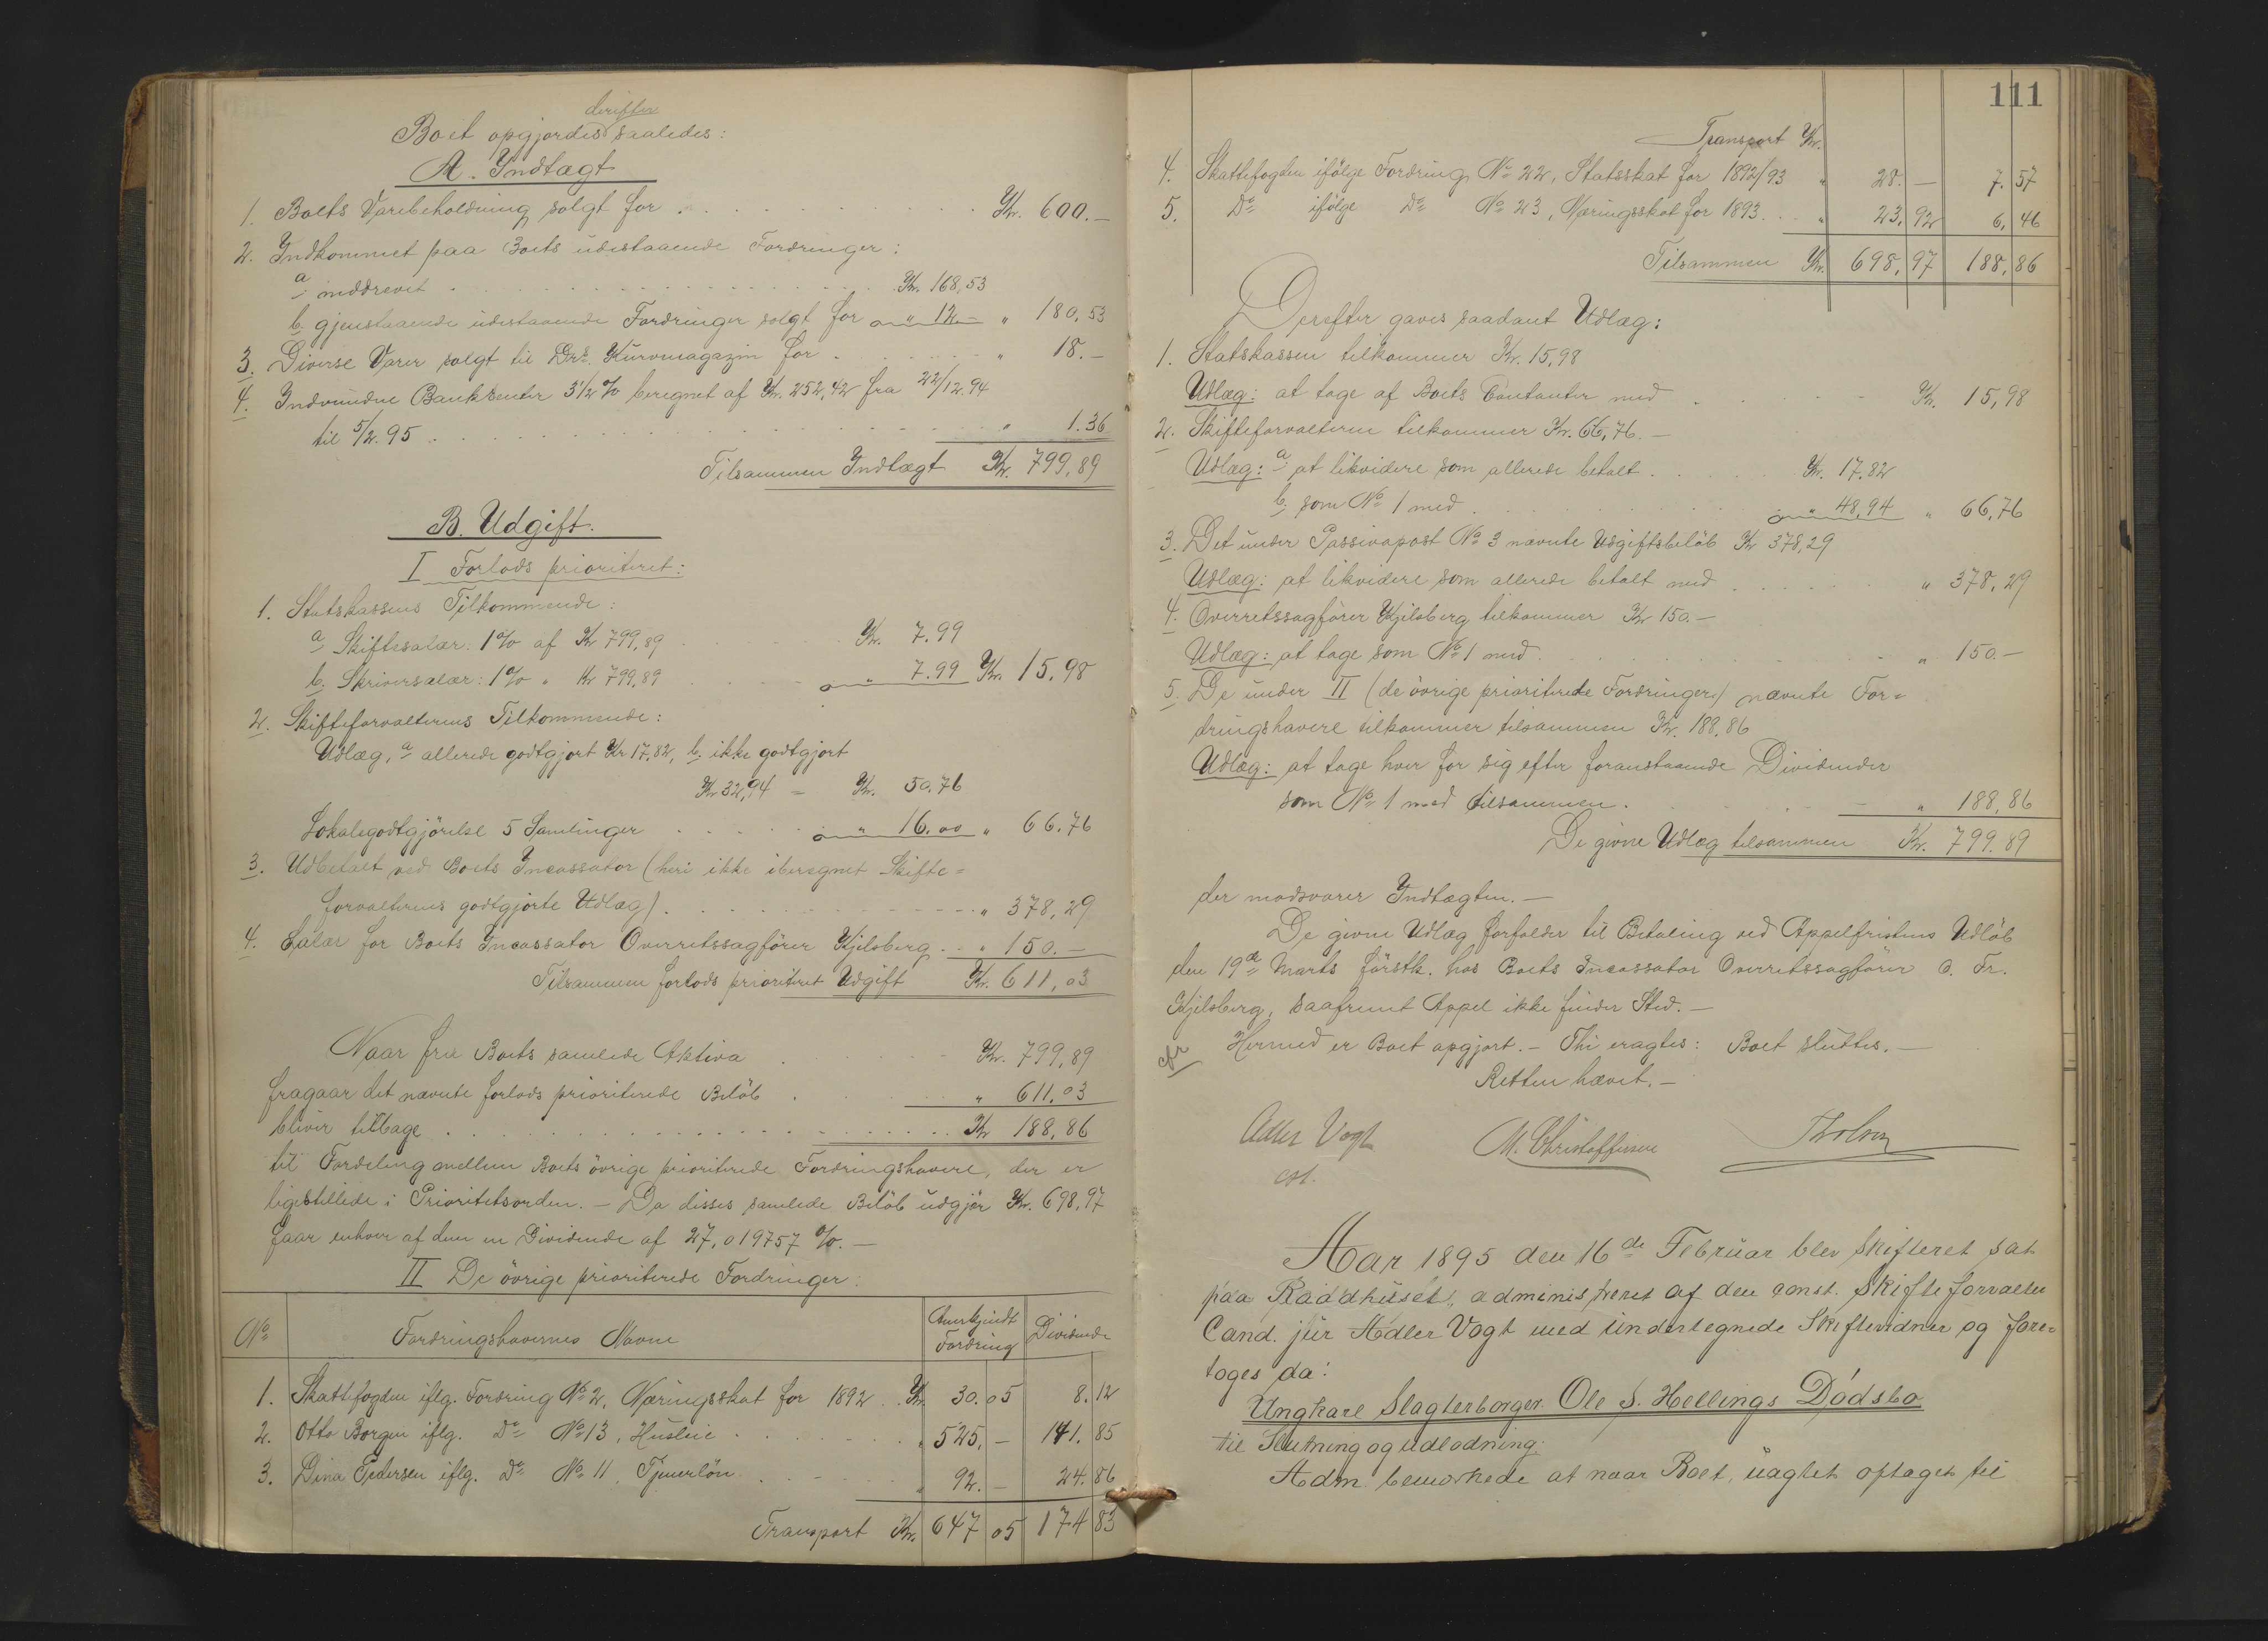 derefter
Boet opgjordes saaledes:
A. Indtægt
1. Boets Varebeholdning solgt for . . . Kr. 600.—
2. Indkommet paa Boets udestaaende Fordringer:
a inddrevet . . . Kr. 168,53
b. gjenstaaende udestaaende Fordringer solgt for " 12.— " 180,53
3. Diverse Varer solgt til Drs. Kurvmagazin for . . . " 18.—
4. Indvundne Bankrenter 3 1/2 % beregnet af Kr. 252,42 fra 22/12 94
til 5/2. 95 . . . " 1.36
Tilsammen Indtægt Kr. 799,89
B. Udgift.
I Forlods prioriteret:
1. Statskassens Tilkommende:
a Skiftesalær: 1% af Kr 799,89 Kr. 7.99
b. Skriversalær: 1% " Kr 799,89 " 7.99 Kr. 15,98
2. Skifteforvalterens Tilkommende:
Udlæg, a allerede godtgjort Kr 17,82, b. ikke godtgjort
Kr 32,94 = Kr. 50.76
Lokalegodtgjörelse 5 Samlinger . . . " 16.00 " 66.76
3. Udbetalt ved Boets Incassator (heri ikke iberegnet Skifte=
forvalterens godtgjorte Udlæg) . . . " 378,29
4. Salær for Boets Incassator Overretssagfører Kjelsberg . . " 150.—
Tilsammen forlods prioriteret Udgift Kr. 611,03
Naar fra Boets samlede Aktiva . . . Kr. 799,89
fragaar det nævnte forlods prioriterede Belöb . . . " 611,03
bliver tilbage . . . Kr 188,86
til Fordeling mellem Boets övrige prioriterede Fordringshavere, der er
ligestillede i Prioritetsorden. — Da disses samlede Belöb udgjör Kr. 698,97
faar enhver af dem en Dividende af 27,019757 %. —
II De övrige prioriterede Fordringer:
No Fordringshavernes Navne Anerkjendt Fordring Dividende
1. Skattefogden iflg. Fordring No 2, Næringsskat for 1892 . . Kr. 30.05 8.12
2. Otto Borgen iflg. Do No 13, Husleie . . . " 525.— 141.85
3. Dina Pedersen iflg. Do No 11, Tjenerlön . . . " 92.— 24.86
Transport Kr. 647 05 174 83
111
Transport Kr.
4. Skattefogden ifölge Fordring No 22, Statsskat for 1892/93 " 28.— 7.57
5. Do ifölge Do No 23, Næringsskat for 1893. . . " 23,92 6,46
Tilsammen Kr. 698,97 188,86
Derefter gaves saadant Udlæg:
1. Statskassen tilkommer Kr. 15,98
Udlæg: at tage af Boets Contanter med . . . Kr. 15,98
2. Skifteforvalteren tilkommer Kr. 66,76.—
Udlæg: a at likvidere som allerede betalt . . . Kr. 17.82
b. som No 1 med . . . " 48,94 " 66,76
3. Det under Passivapost No 3 nævnte Udgiftsbelöb Kr 378,29
Udlæg: at likvidere som allerede betalt med . . . " 378,29
4. Overretssagförer Kjelsberg tilkommer Kr 150.—
Udlæg: at tage som No 1 med . . . " 150.—
5. De under II (de övrige prioriterede Fordringer) nævnte For=
dringshavere tilkommer tilsammen Kr. 188,86
Udlæg: at tage hver for sig efter foranstaaende Dividender
som No 1 med tilsammen . . . " 188,86
De givne Udlæg tilsammen Kr. 799.89
der modsvarer Indtægten.—
De givne Udlæg forfalder til Betaling ved Appelfristens Udlöb
den 19de Marts förstk. hos Boets Incassator Overretssagförer O. Fr.
Kjelsberg, saafremt Appel ikke finder Sted.—
Hermed er Boet opgjort.— Thi eragtes: Boet sluttes.—
Retten hævet.—
Adler Vogt M. Christoffersen
cst.
Aar 1895 den 16de Februar blev Skifteret sat
paa Raadhuset, administreret af den const. Skifteforvalter
Cand. jur Adler Vogt med undertegnede Skiftevidner og fore=
toges da:
Ungkarl Slagterborger Ole S. Hellings Dödsbo
til Slutning og udlodning.
Adm. bemærkede at naar Boet, uagtet optaget til